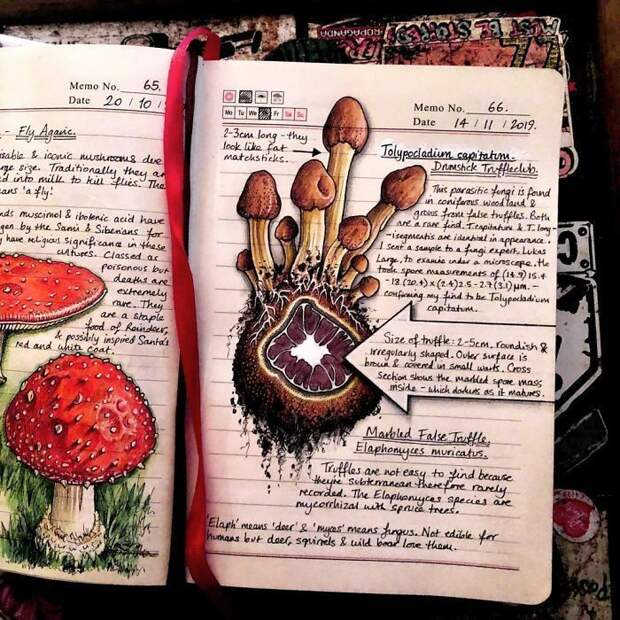 Memo No. 65.
Date 20 / 10 / 
- Fly Agaric.
isable & iconic mushrooms due
rge size. Traditionally they are
ed into milk to kill 'flies'. The
eans 'a fly'.
nds muscimol & ibotenic acid have
gen by the Sami & Siberians for
y have religious significance in these
cultures. Classed as
poisonous but
deaths are
extremely
rare. They
are a staple
food of Reindeer,
& possibly inspired Santa's
red and white coat.
Mo Tu We Fr Sa Su
Memo No. 66.
Date 14 / 11 / 2019.
2-3cm long - they
look like fat
matchsticks.
Tolypocladium capitatum -
Drumstick Truffleclub.
This parasitic fungi is found
in coniferous woodland &
grows from false truffles. Both
are a rare find. T.capitatum & T. long
-isegmentis are identical in appearance.
I sent a sample to a fungi expert, Lukas
Large, to examine under a microscope. He
took spore measurements of (14.9) 15.4
-18 (20.4) x (2.4) 2.5 - 2.7 (3.1) µm. -
confirming my find to be Tolypocladium
capitatum.
Size of truffle: 2-5cm, roundish &
irregularly shaped. Outer surface is
brown & covered in small warts. Cross
section shows the marbled spore mass
inside - which darkens as it matures.
Marbled False Truffle,
Elaphomyces muricatus.
Truffles are not easy to find because
they're subterranean therefore rarely
recorded. The Elaphomyces species are
mycorrhizal with spruce trees.
'Elaph' means 'deer' & 'myces' means fungus. Not edible for
humans but deer, squirrels & wild boar love them.
PROPAGANDA
MUST BE STOPPED